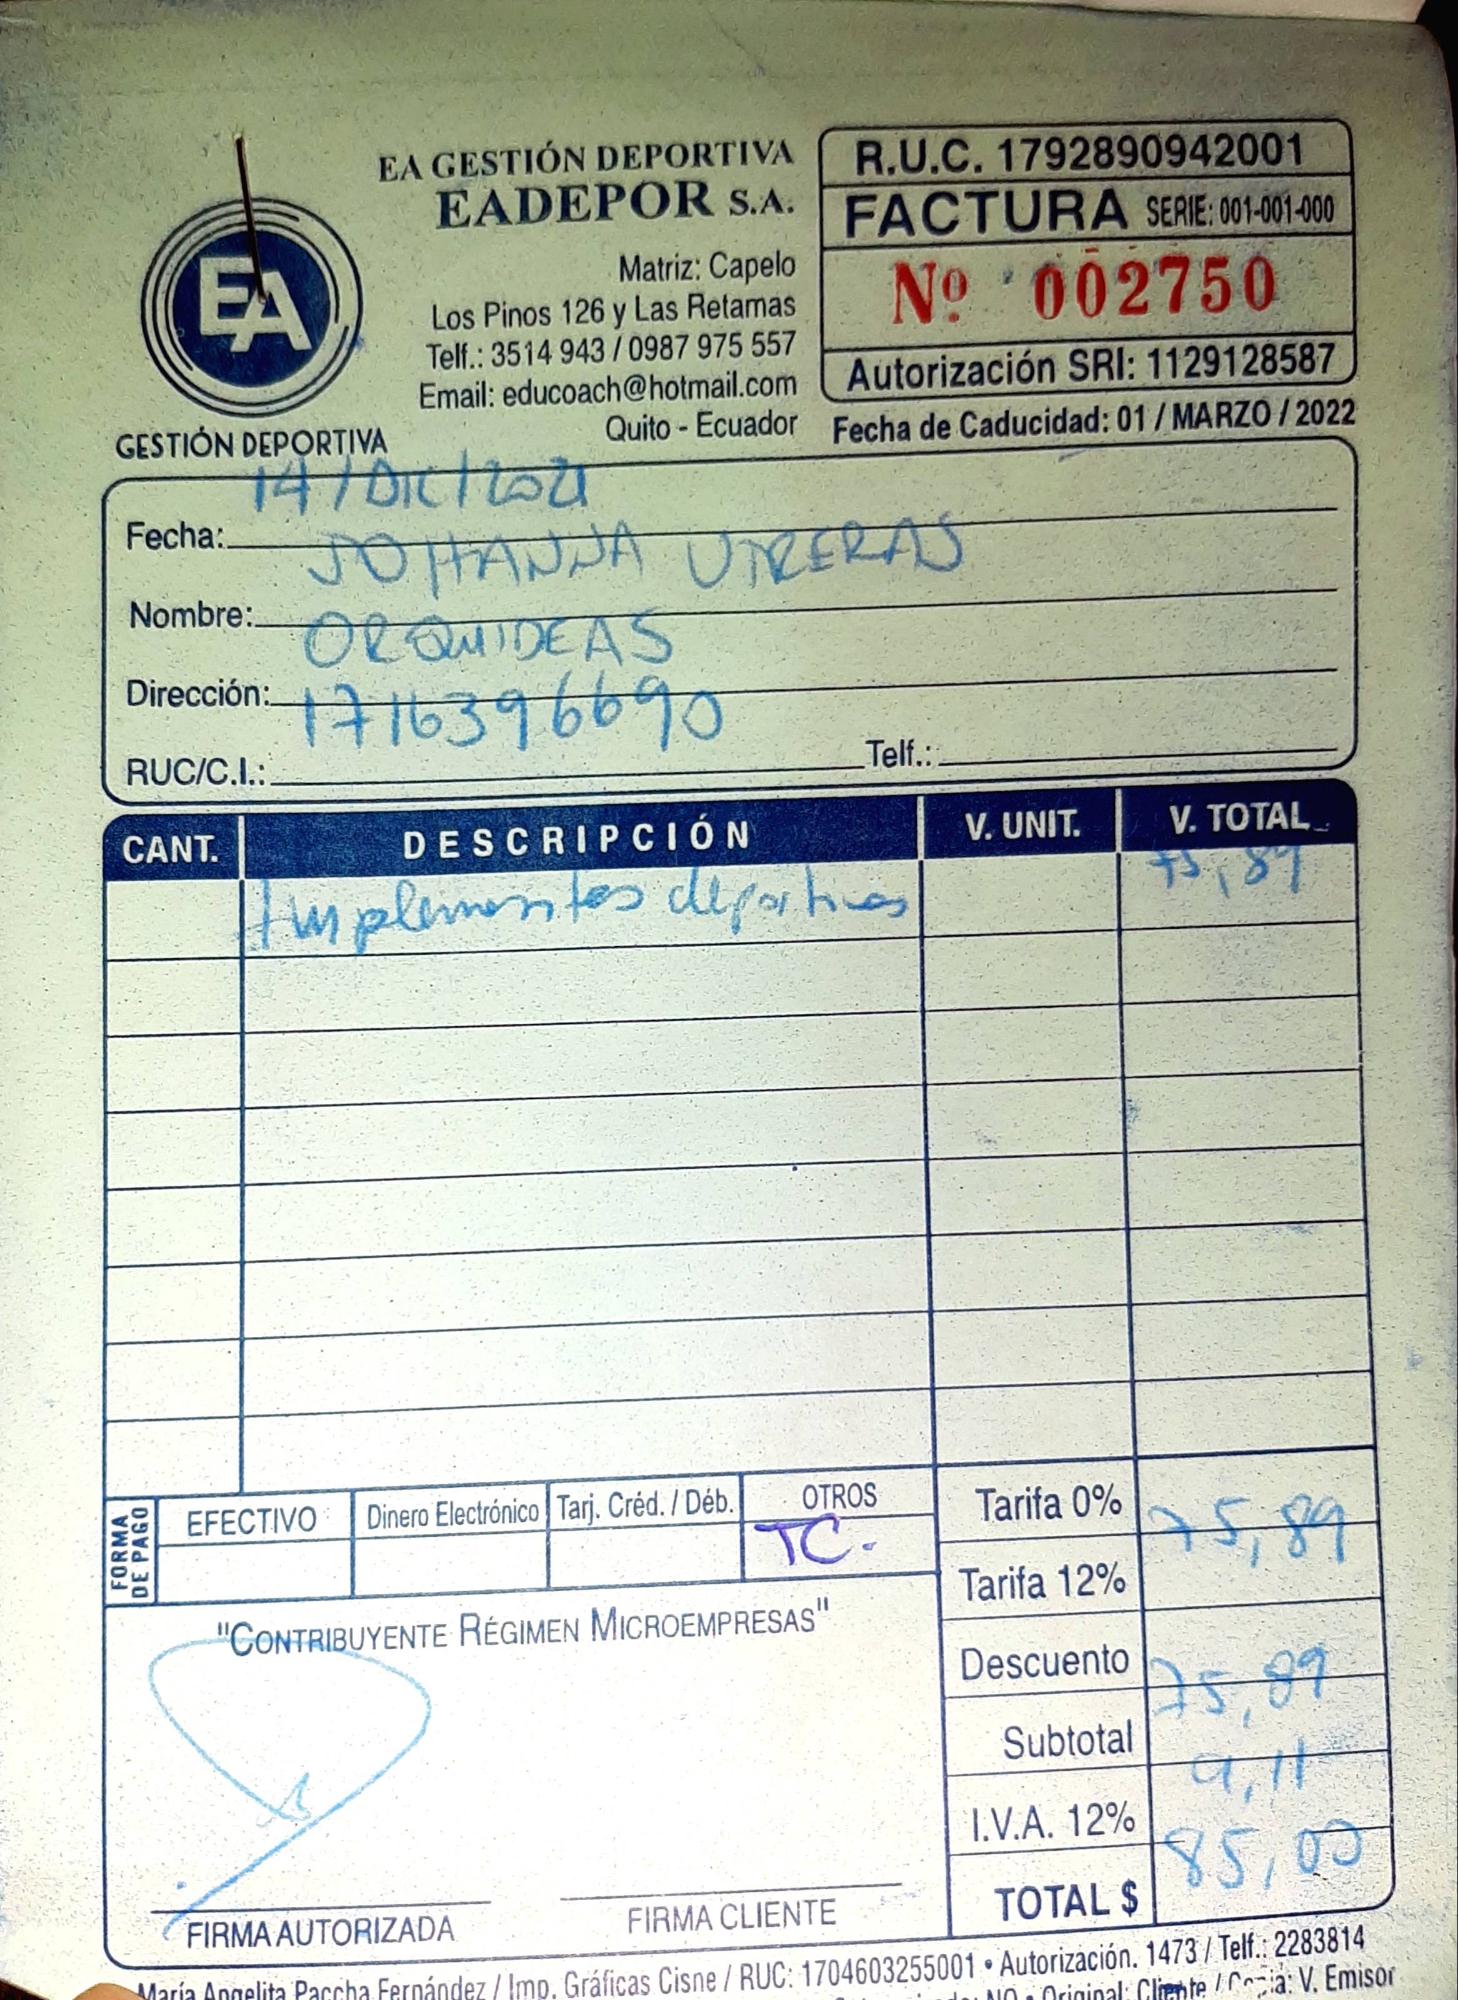 EA GESTIÓN DEPORTIVA
EADEPOR S.A.
Matriz: Capelo
Los Pinos 126 y Las Retamas
Telf.: 3514 943 / 0987 975 557
Email: educoach@hotmail.com
Quito - Ecuador
EA
GESTIÓN DEPORTIVA
R.U.C. 1792890942001
FACTURA SERIE: 001-001-000
Nº 002750
Autorización SRI: 1129128587
Fecha de Caducidad: 01 / MARZO / 2022
Fecha: 14/DIC/2021
Nombre: JOHANNA UTRERAS
Dirección: ORQUIDEAS
RUC/C.I.: 1716396690 Telf.:
CANT. DESCRIPCIÓN V. UNIT. V. TOTAL
Implementos deportivos 75,89
FORMA DE PAGO
EFECTIVO Dinero Electrónico Tarj. Créd. / Déb. OTROS
TC.
Tarifa 0%
Tarifa 12% 75,89
Descuento
Subtotal 75,89
I.V.A. 12% 9,11
TOTAL $ 85,00
"CONTRIBUYENTE RÉGIMEN MICROEMPRESAS"
FIRMA AUTORIZADA FIRMA CLIENTE
María Angelita Paccha Fernández / Imp. Gráficas Cisne / RUC: 1704603255001 • Autorización. 1473 / Telf.: 2283814
NO • Original: Cliente / Copia: V. Emisor